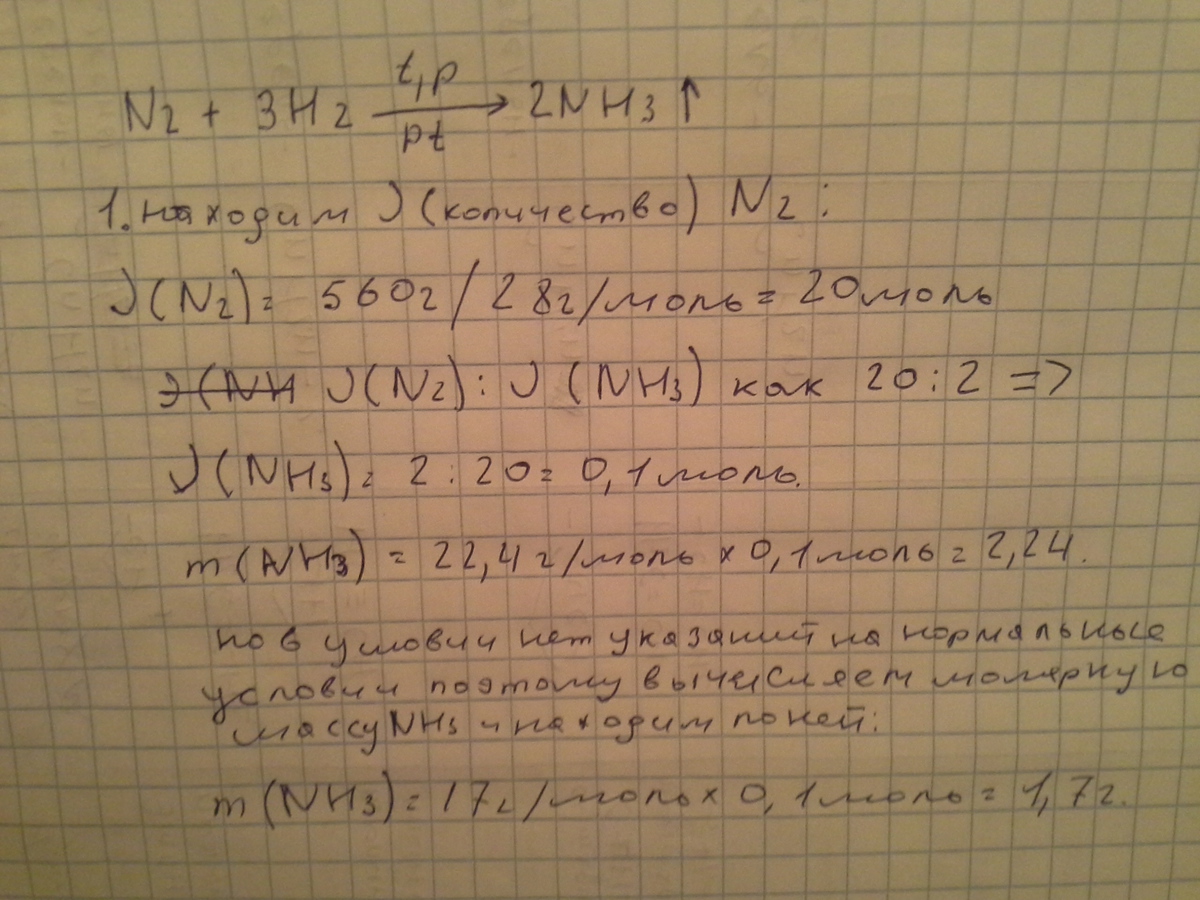 t, p
N2 + 3H2 → 2NH3↑
pt
1. находим ν (количество) N2:
ν(N2) = 560г / 28г/моль = 20моль
ν(NH ν(N2) : ν (NH3) как 20:2 =>
ν(NH3) = 2 : 20 = 0,1 моль.
m(NH3) = 22,4 г/моль × 0,1 моль = 2,24.
но в условии нет указаний на нормальные
условии поэтому вычисляем молярную
массу NH3 и находим по ней:
m(NH3) = 17г/моль × 0,1 моль = 1,7г.